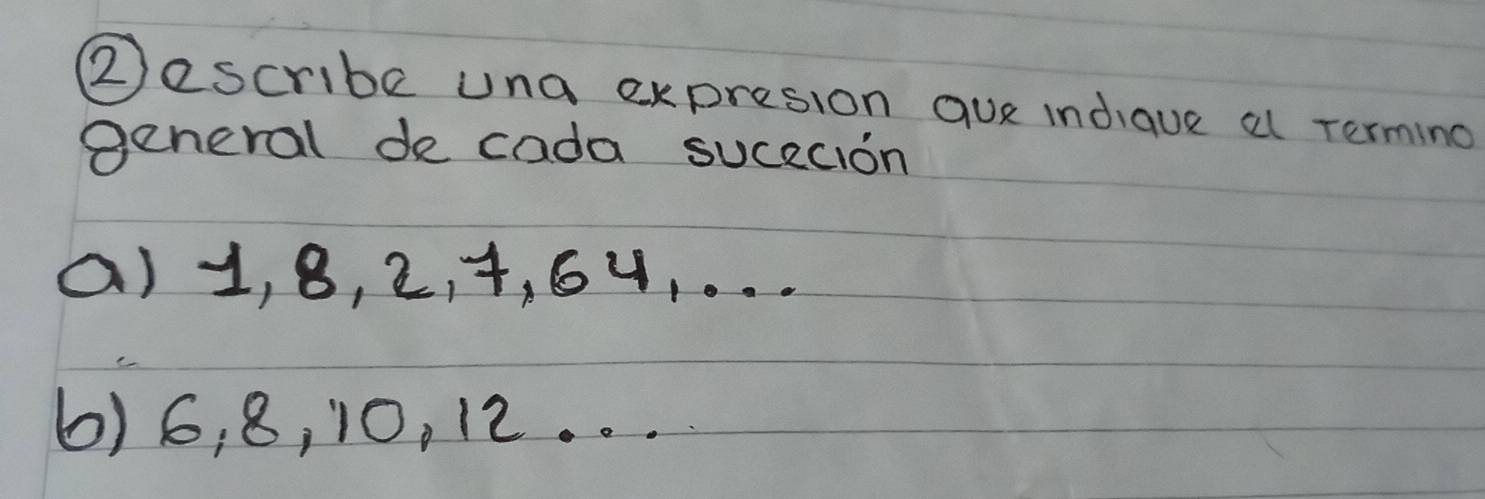 ② escribe una expresion que indique el termino
general de cada suceción
a) 1, 8, 2, 7, 64, ...
b) 6, 8, 10, 12 ....